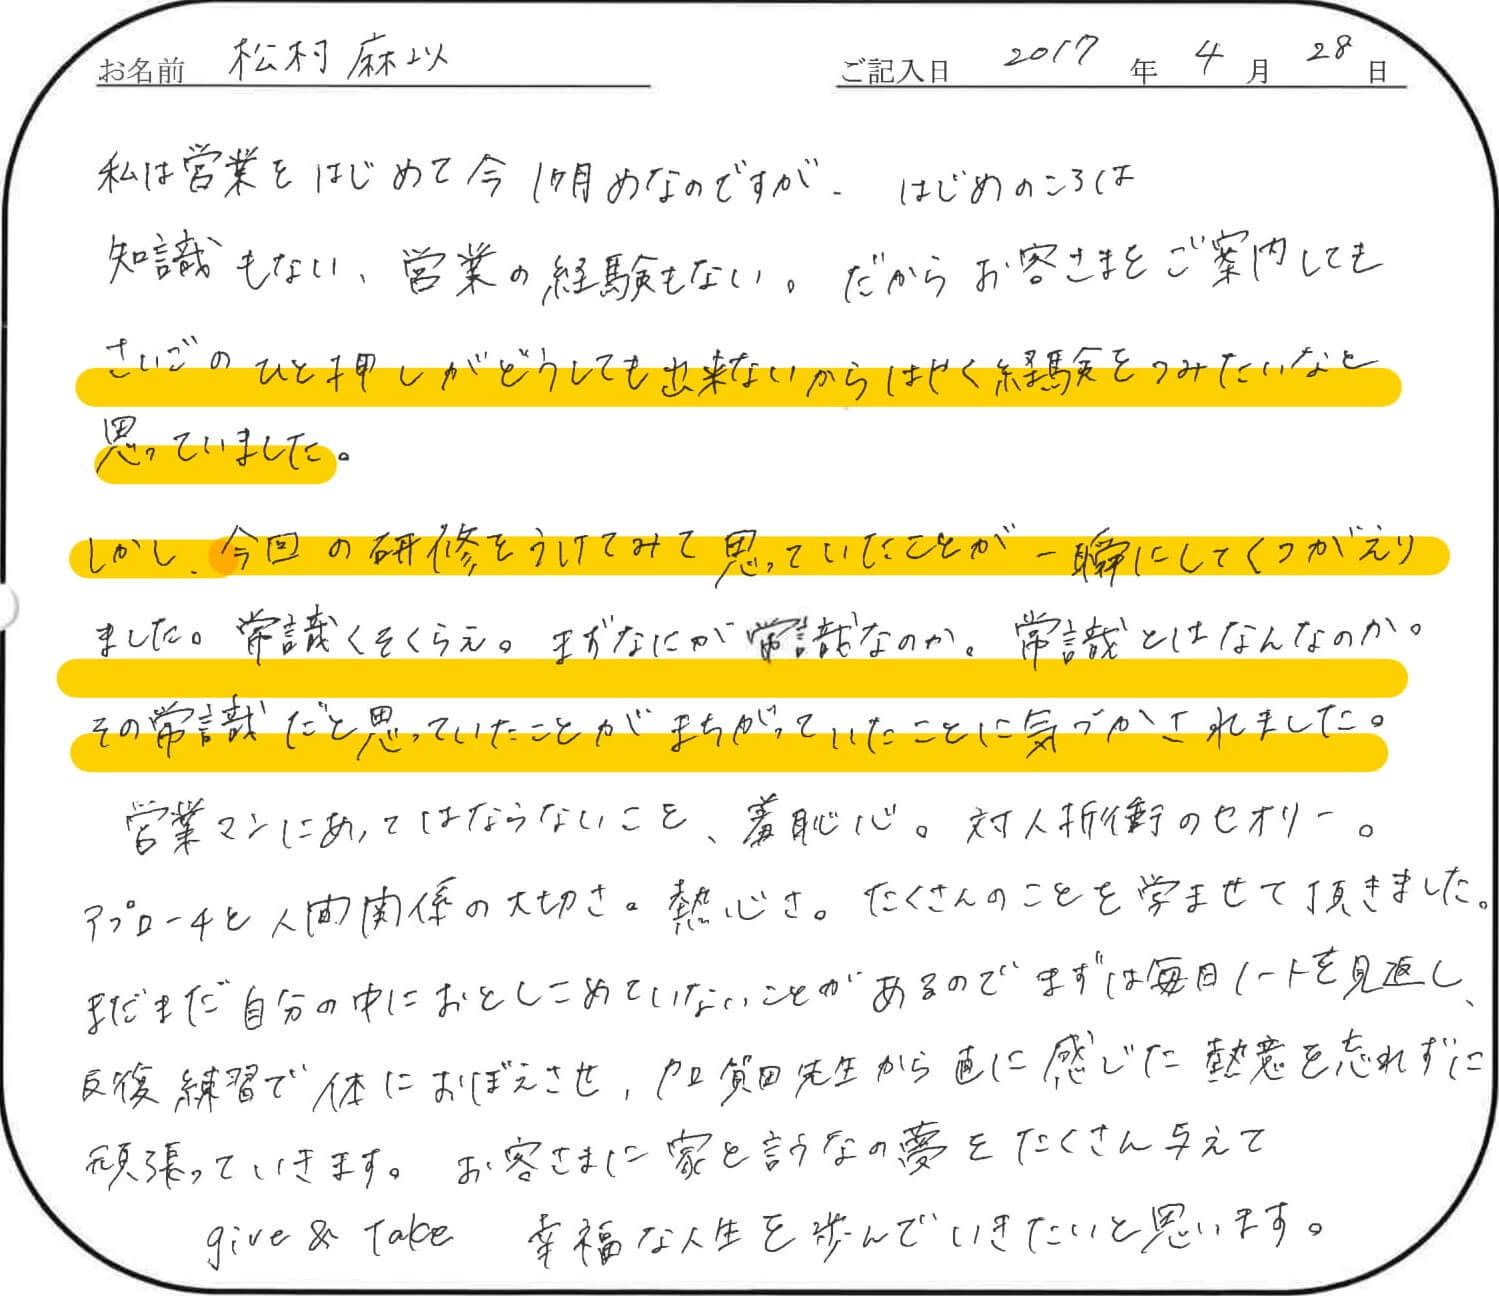 お名前 松村 麻以 ご記入日 2017 年 4 月 28 日
私は営業をはじめて今1ヶ月めなのですが、はじめのころは
知識もない、営業の経験もない。だからお客さまをご案内しても
さいごのひと押しがどうしても出来ないからはやく経験をつみたいなと
思っていました。
しかし、今回の研修をうけてみて思っていたことが一瞬にしてくつがえり
ました。常識くそくらえ。まずなにが常識なのか。常識とはなんなのか。
その常識だと思っていたことがまちがっていたことに気づかされました。
営業マンにあってはならないこと、羞恥心。対人折衝のセオリー。
アプローチと人間関係の大切さ。熱心さ。たくさんのことを学ませて頂きました。
まだまだ自分の中におとしこめていないことがあるのでまずは毎日ノートを見返し、
反復練習で体におぼえさせ、加賀田先生から直に感じた熱意を忘れずに
頑張っていきます。お客さまに家と言うなの夢をたくさん与えて
give & take 幸福な人生を歩んでいきたいと思います。